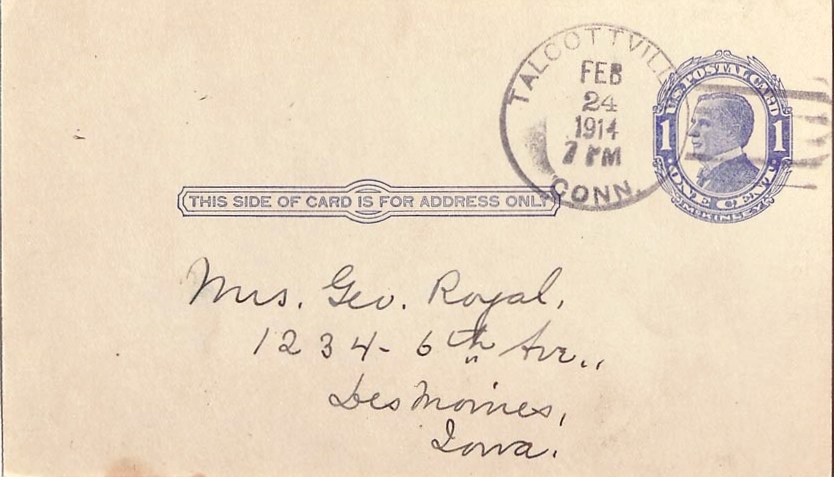 TALCOTTVILL
FEB
24
1914
7 PM
CONN.
U.S. POSTAL CARD
1 1
ONE CENT
McKINLEY
THIS SIDE OF CARD IS FOR ADDRESS ONLY
Mrs. Geo. Royal,
1234- 6th Ave.,
Des Moines,
Iowa.